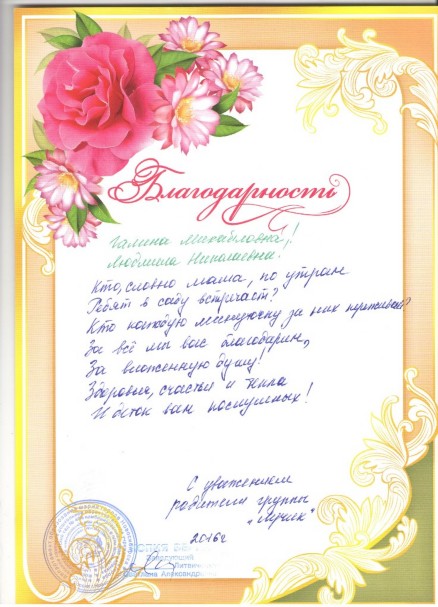 Благодарность
Галина Михайловна,!
Людмила Николаевна.
Кто, словно мама, по утрам
Ребят в саду встречает?
Кто каждую минуточку за них переживает?
За всё мы вас благодарим,
За вложенную душу!
Здоровья, счастья и тепла
И деток вам послушных!
С уважением
родители группы
"Лучик"
2016г
КОПИЯ
Заведующий
Александровна